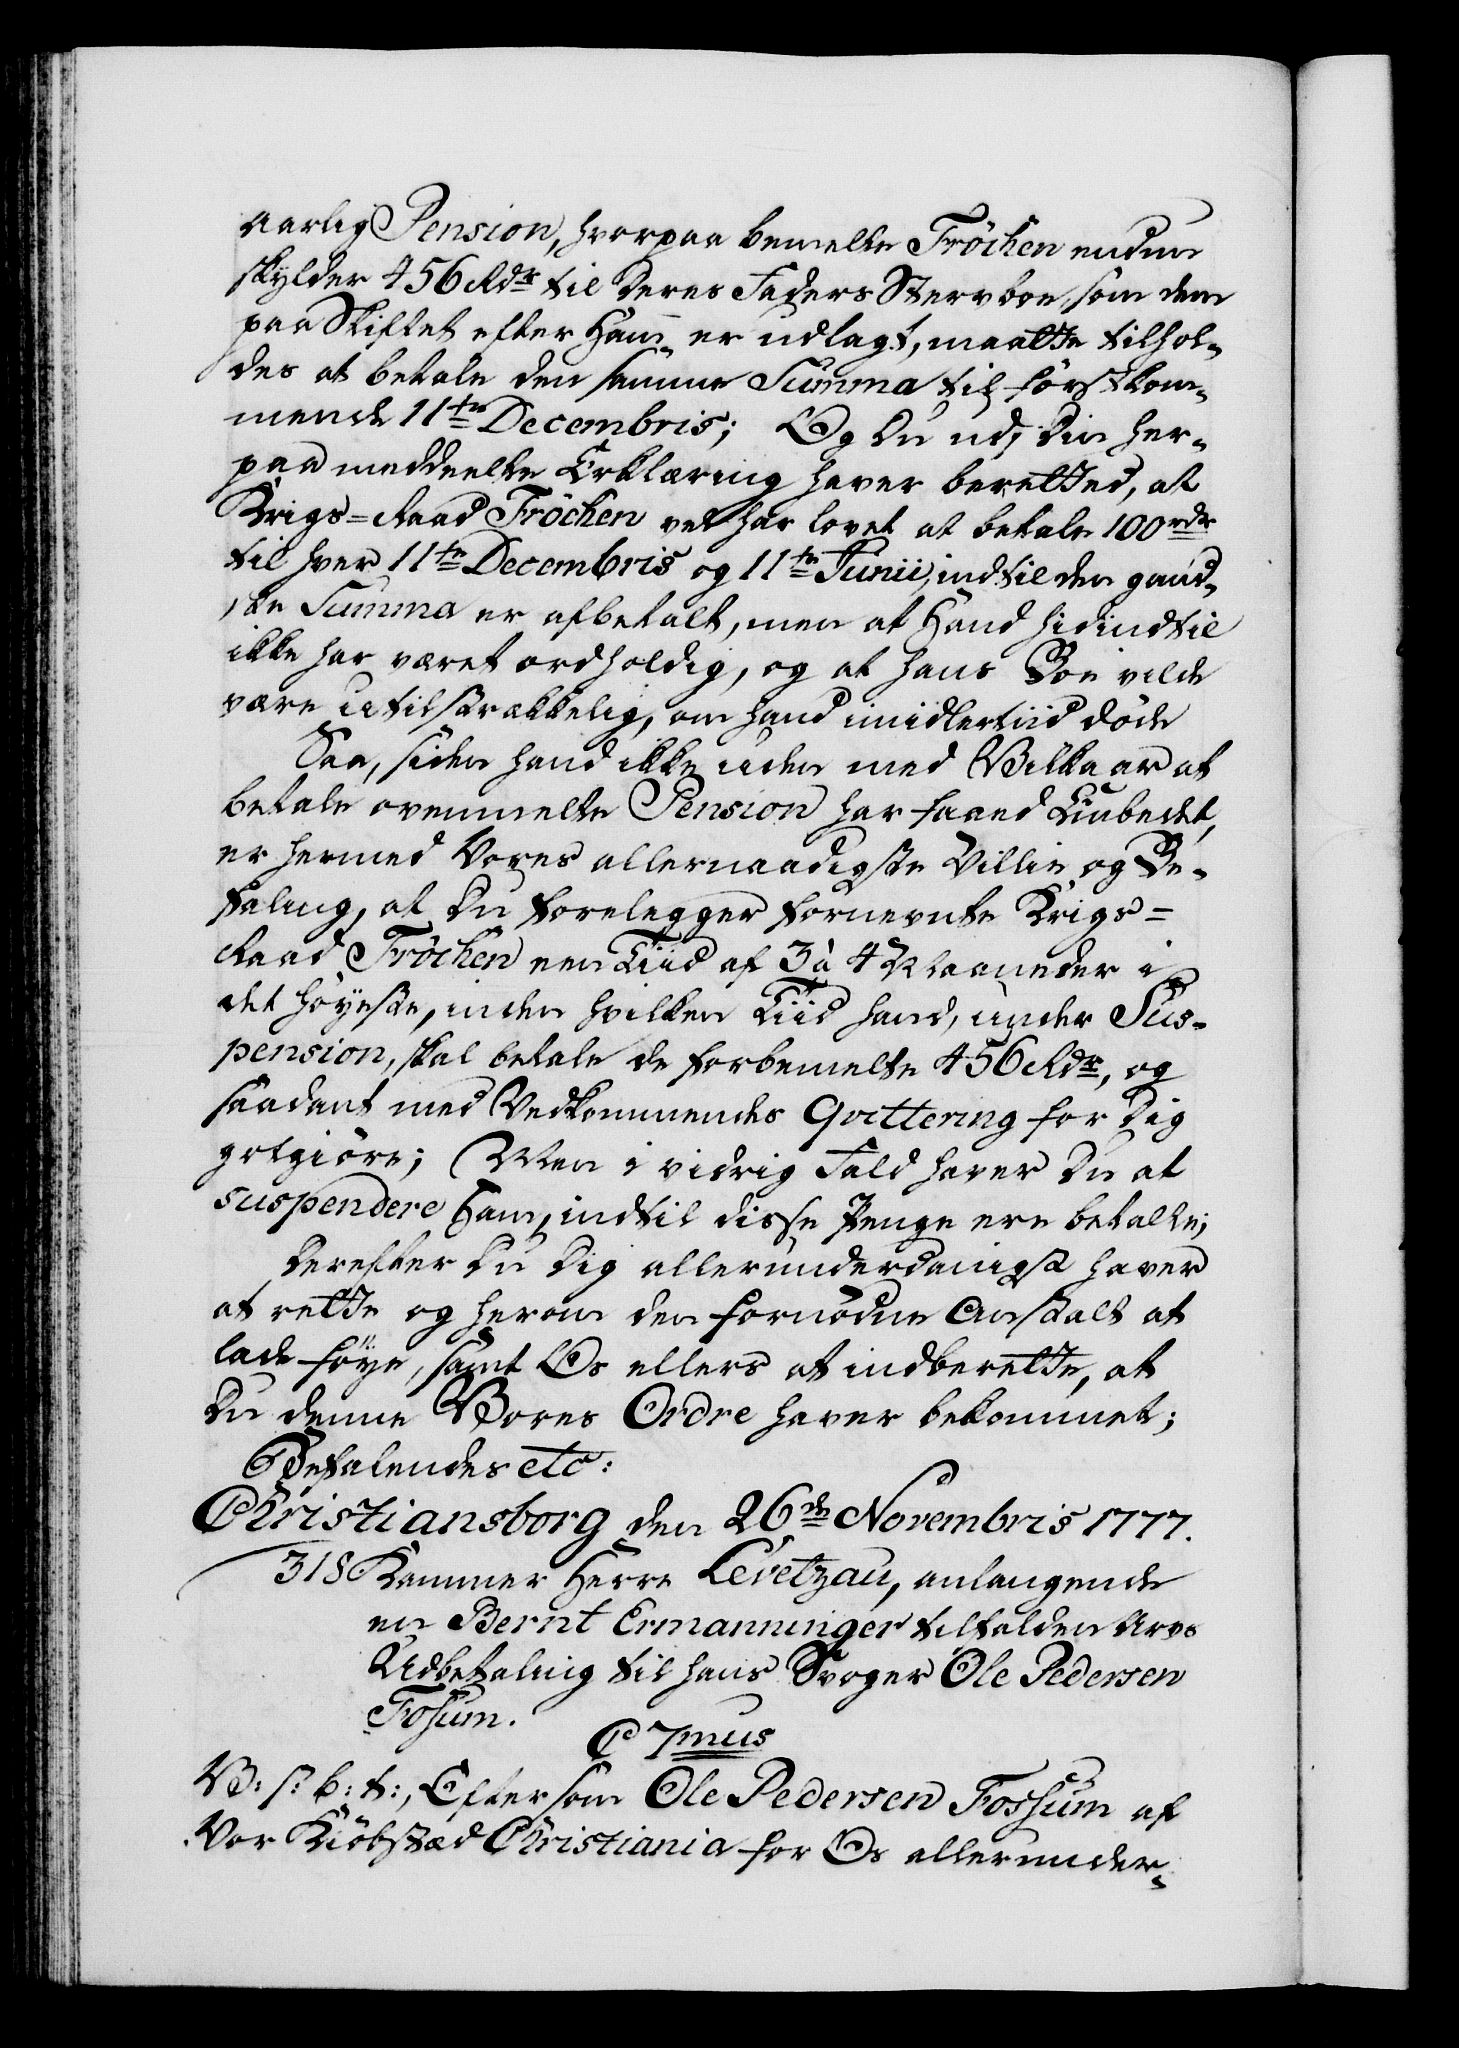 aarlig Pension, hvorpaa bemelte Fröchen endnu
skylder 456 Rdr til deres Faders Sterboe, som dem
paa Skiftet efter Ham er udlagt, maatte tilhol-
des at betale den samme Summa til førstkom-
mende 11te Decembris; Og Du udj Din her-
paa meddeelte Erklæring haver berettet, at
Krigs-Raad Fröchen vel har lovet at betale 100 rdr
til hver 11te Decembris og 11te Junii, indtil den gand-
ske Summa er afbetalt, men at Hand hidindtil
ikke har været ordholdig, og at hans Boe vilde
være utilstrækkelig, om hand imidlertiid døde
Saa, siden hand ikke uden med Vilkaar at
betale ovenmelte Pension har faaed Embedet,
er hermed Vores allernaadigste Villie og Be-
faling, at Du forelegger fornevnte Krigs-
Raad Fröchen een Tiid af 3 à 4 Maaneder i
det høyeste, inden hvilken Tiid hand, under Sus-
pension, skal betale de forbemelte 456 Rdr, og
saadant med Vedkommendes Qvittering for Dig
gotgiøre; Men i vidrig Fald haver Du at
suspendere Ham, indtil disse Penge ere betalte;
Derefter Du Dig allerunderdanigst haver
at rette og herom den fornødne Anstalt at
lade føye, samt Os ellers at indberette, at
Du denne Vores Ordre haver bekommet;
Befalendes etc:
Christiansborg den 26de Novembris 1777.
318 Kammer Herre Levetzau, anlangende
en Bernt Ermanninger tilfalden Arvs
Udbetaling til hans Svoger Ole Pedersen
Fossum.
C 7mus
V: s: b: t:, Eftersom Ole Pedersen Fossum af
Vor Kiøbstæd Christiania for Os allerunder-